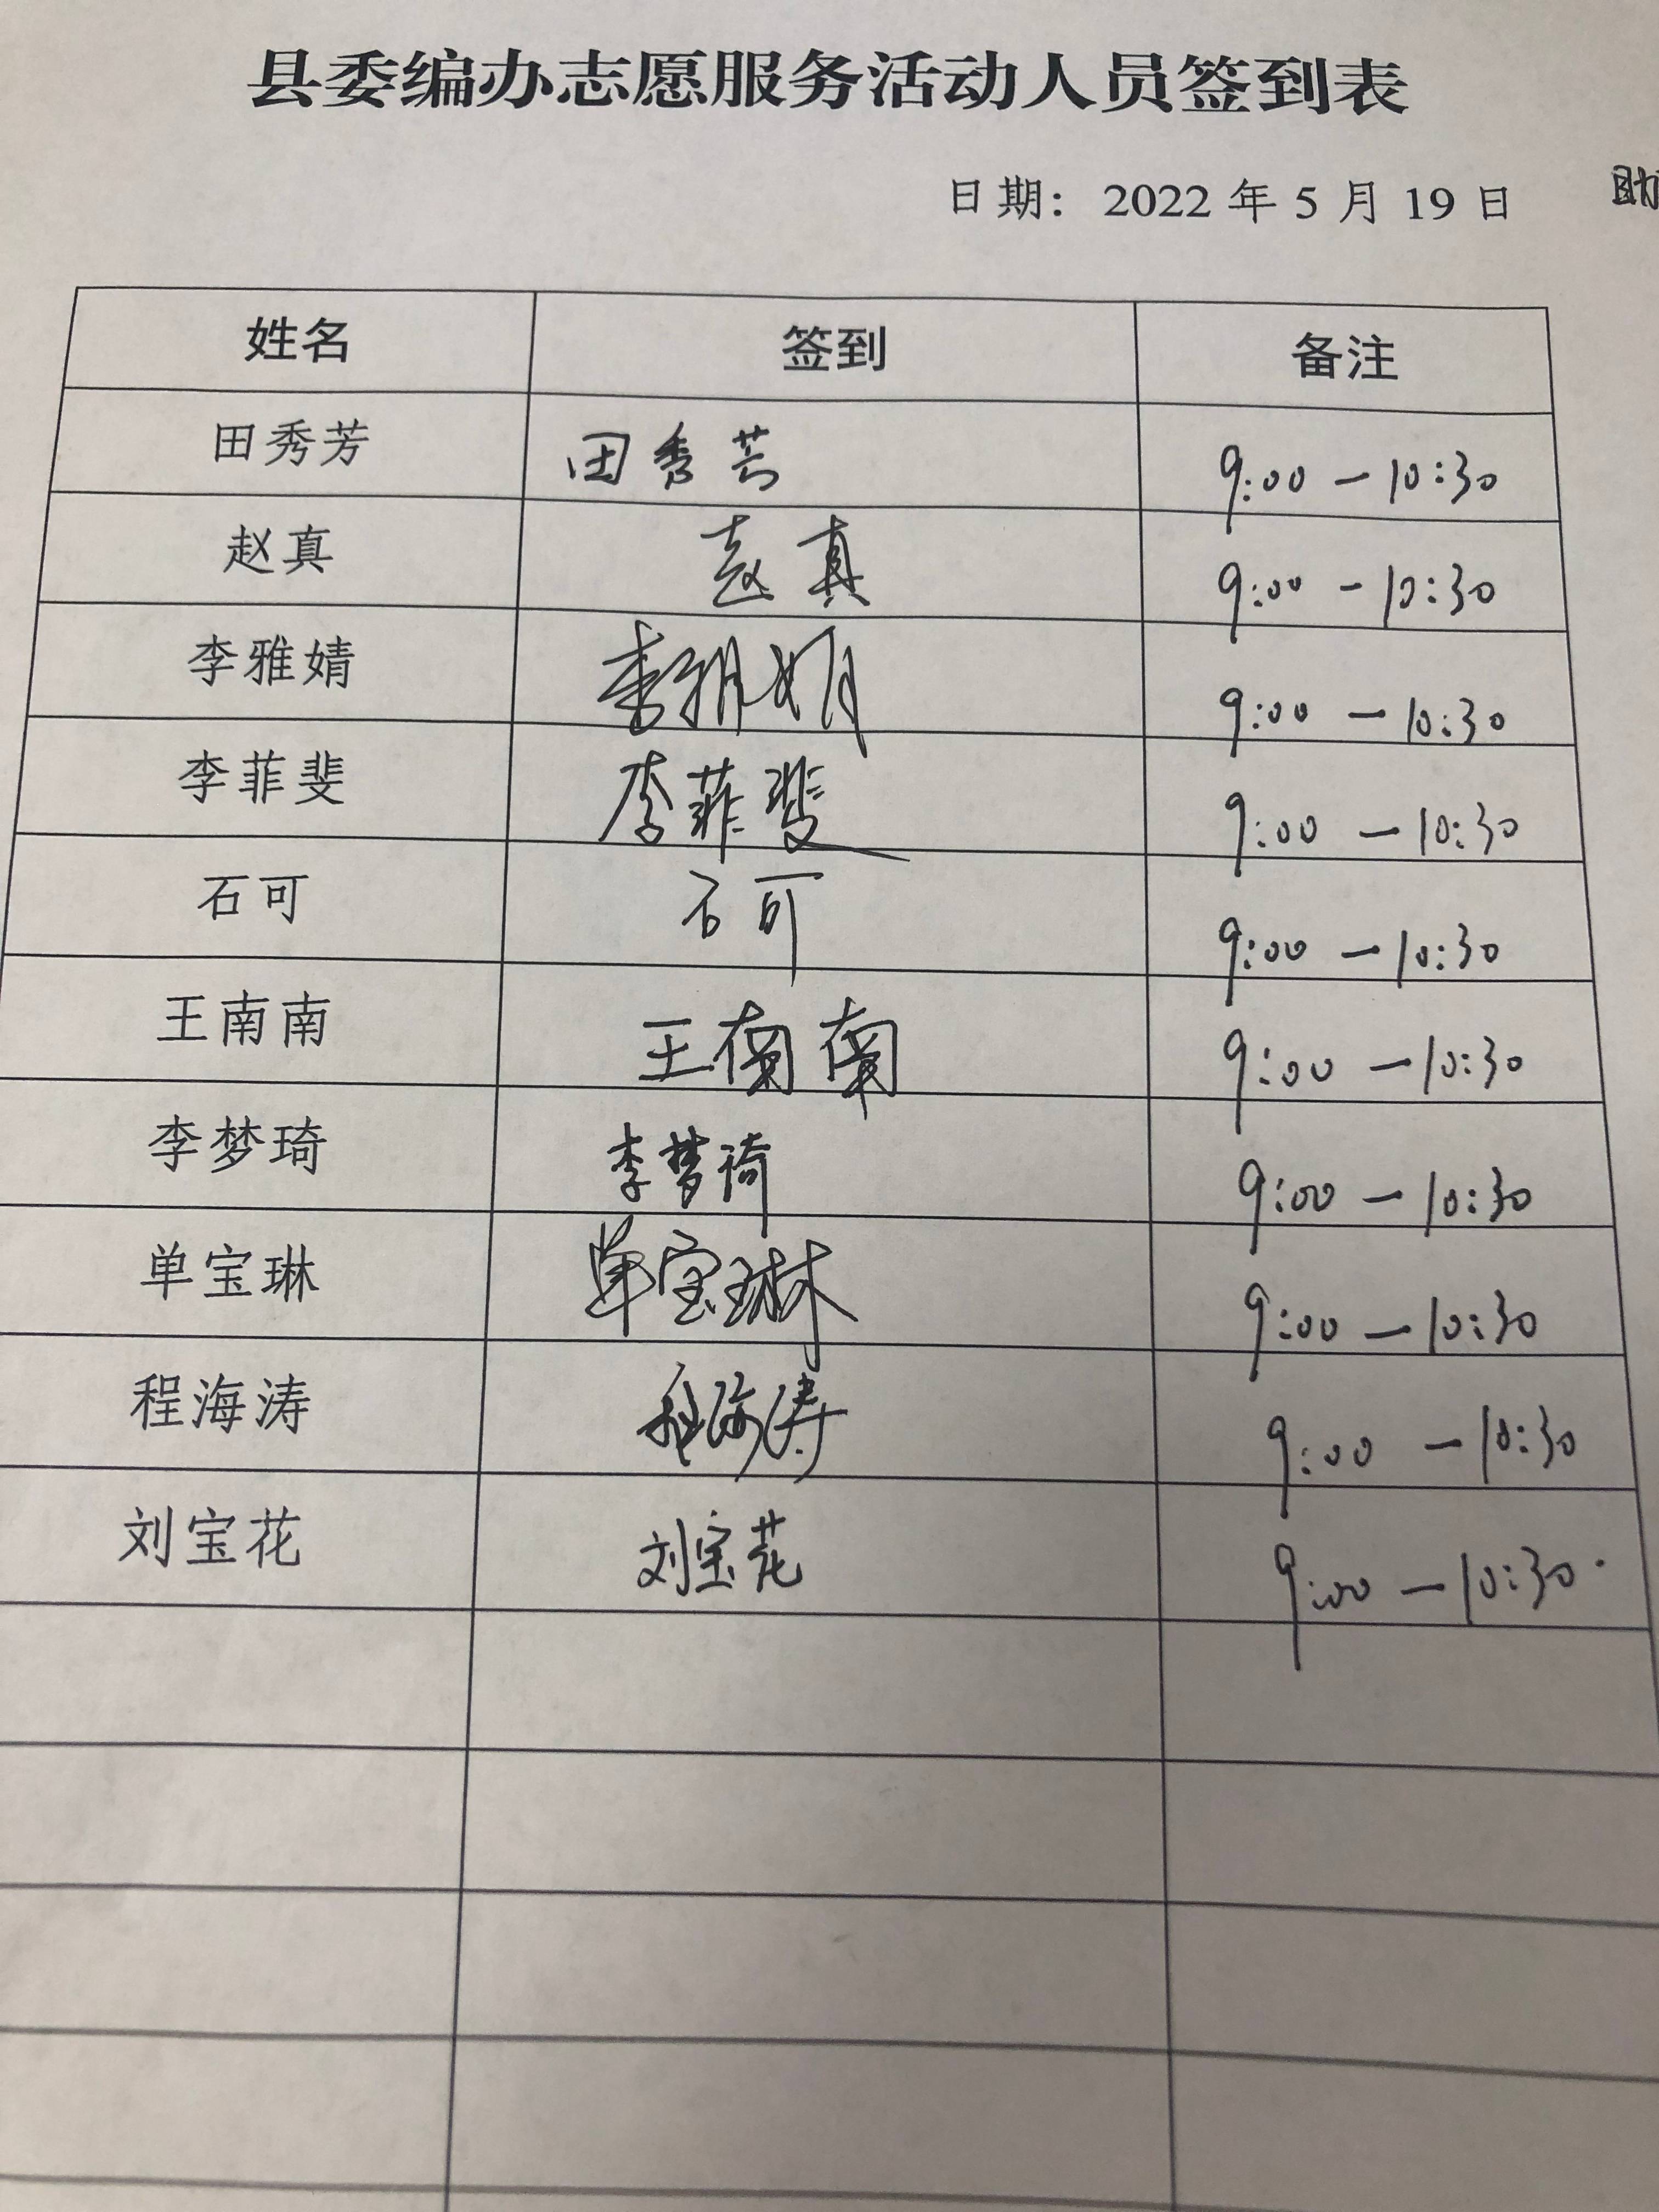 县委编办志愿服务活动人员签到表
日期：2022年5月19日 助
姓名 签到 备注
田秀芳 田秀芳 9:00—10:30
赵真 赵真 9:00-10:30
李雅婧 李雅婧 9:00—10:30
李菲斐 李菲斐 9:00—10:30
石可 石可 9:00—10:30
王南南 王南南 9:00—10:30
李梦琦 李梦琦 9:00—10:30
单宝琳 单宝琳 9:00—10:30
程海涛 程海涛 9:00—10:30
刘宝花 刘宝花 9:00—10:30.